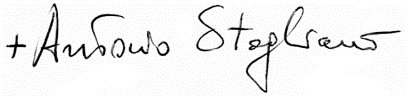 + Antonio Staglianò